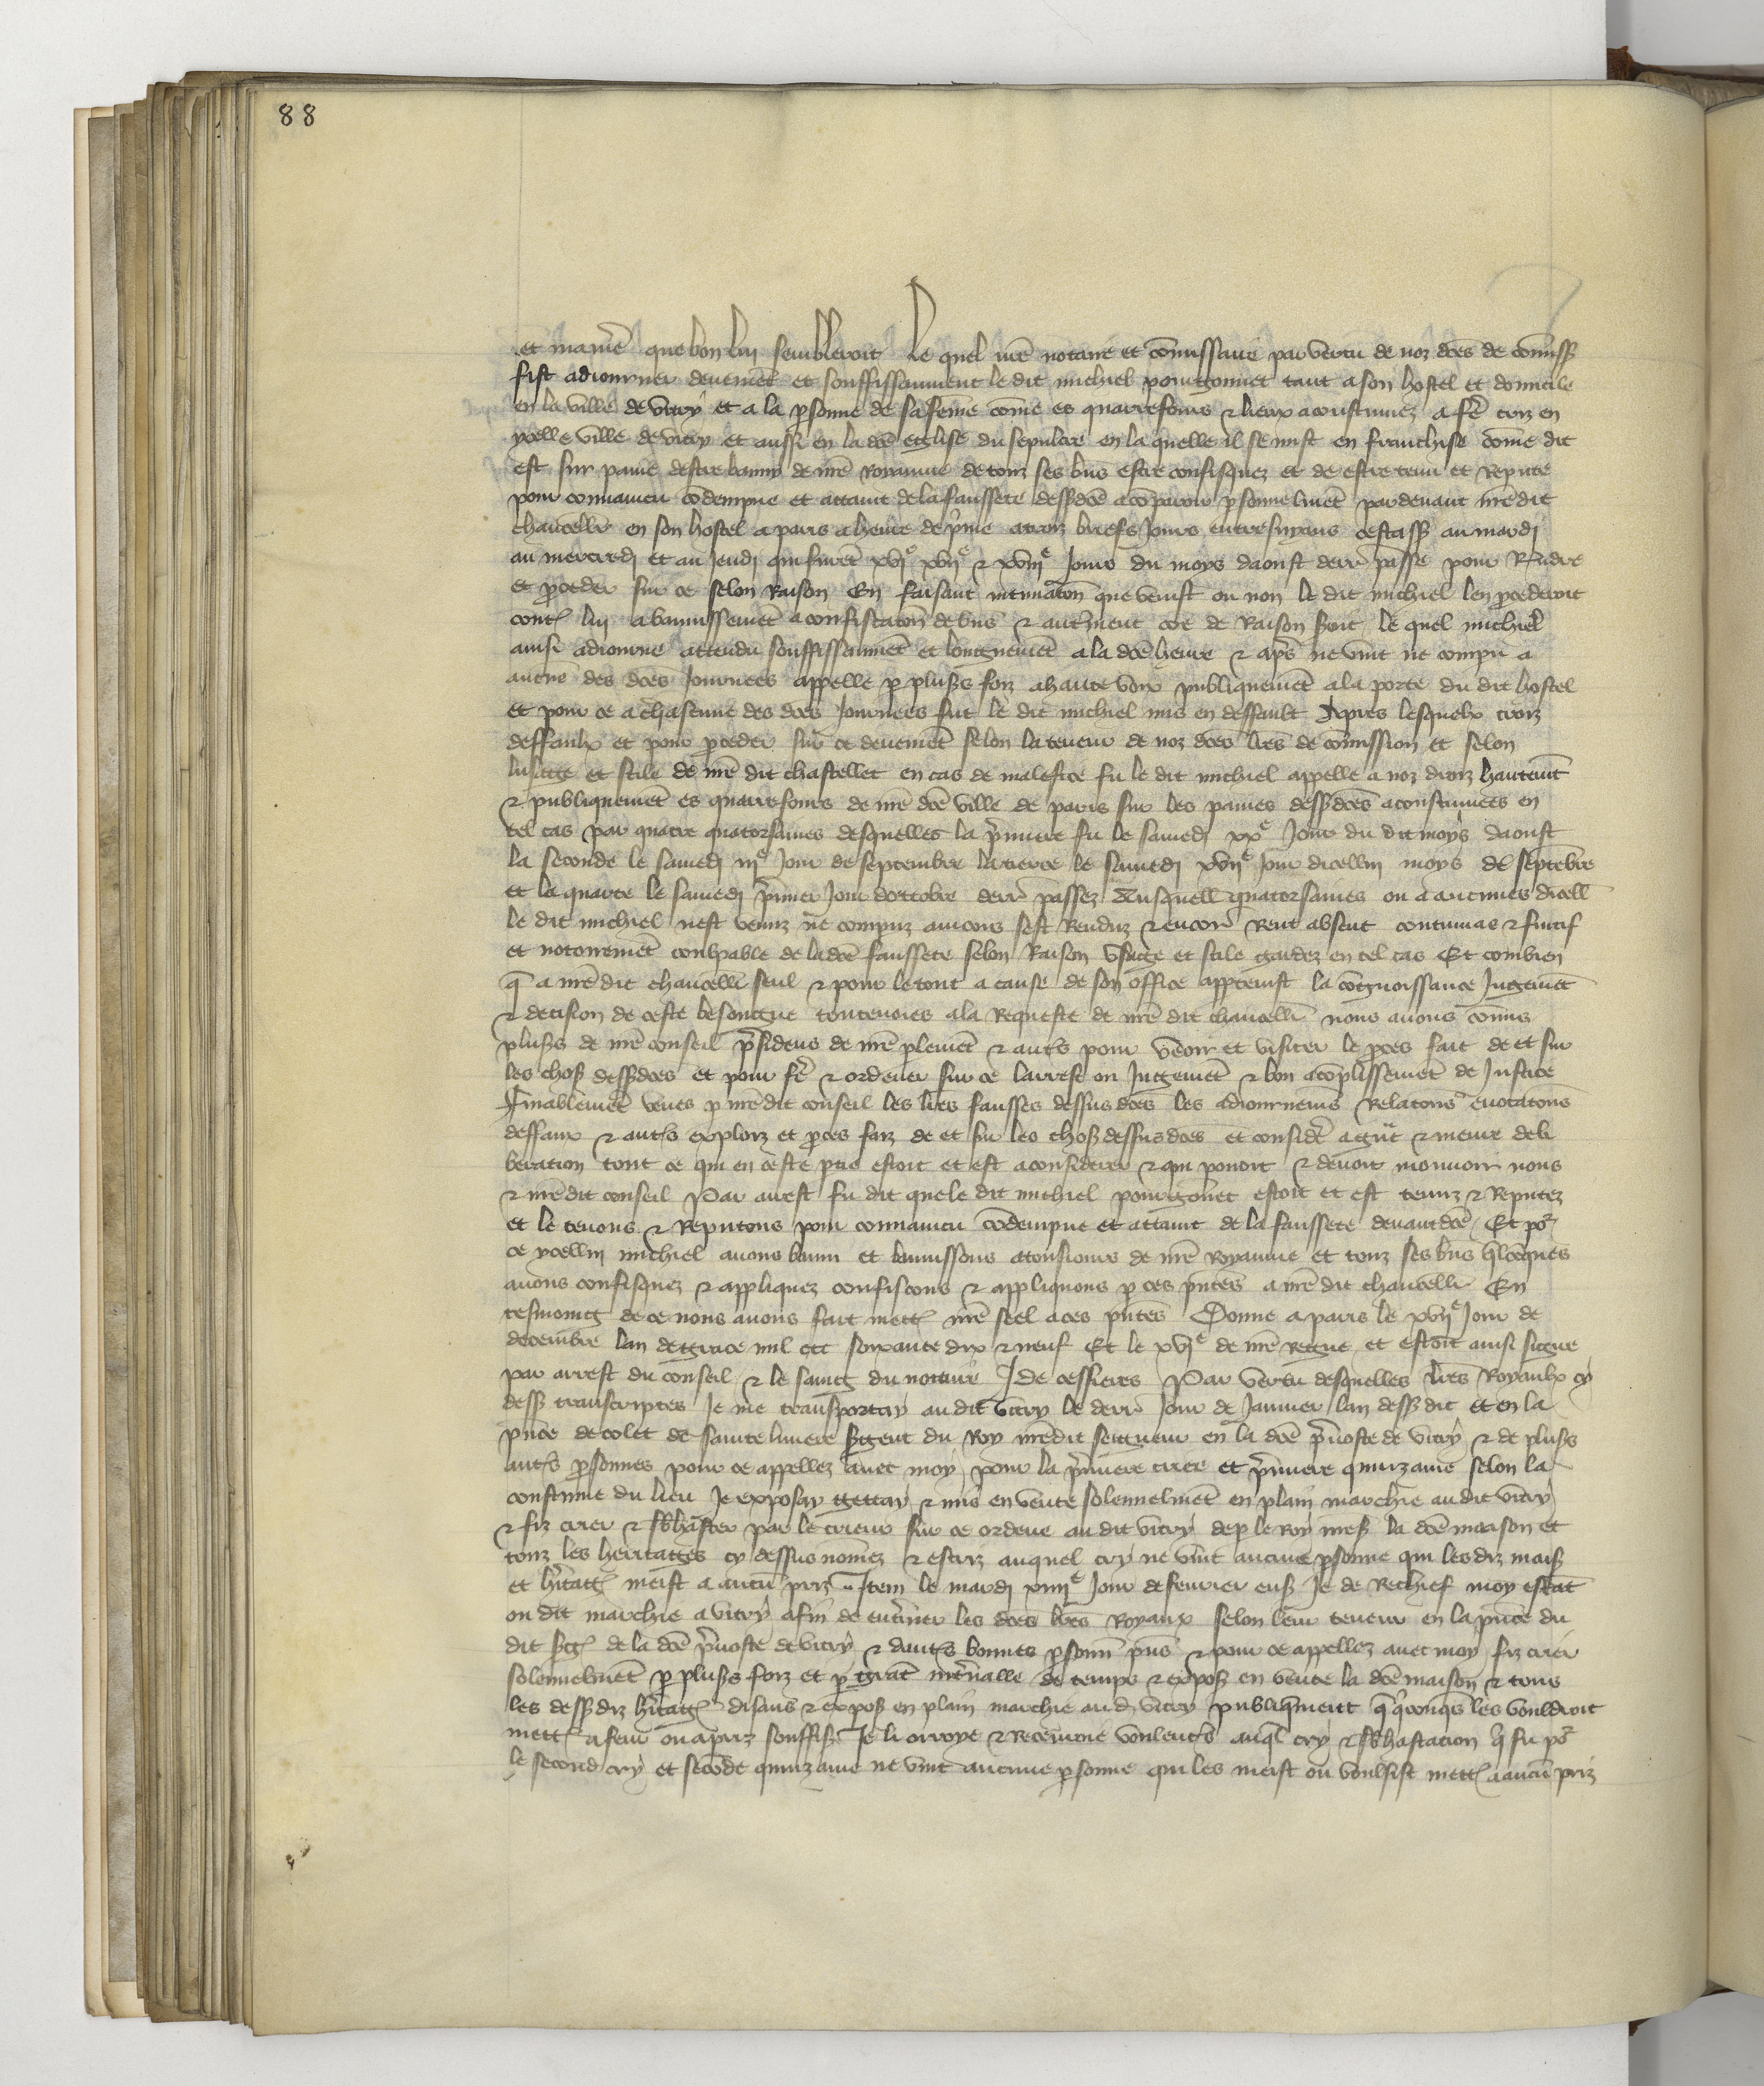 88
et manie᷒ que bon lui sembleroit Le quel nr̄e notaire et cōmissaire par vertu de noz dc̄es de cōmiss
fist adiourner deuemēt et souffisamment le dit michiel pourgonnet tant a son hostel et domicile
en la ville de vitry et a la p̱sonne de sa fem̄e cōme es quarrefours ⁊ lieux acoustumez a fē criz en
ycelle ville de vitry et aussi en la dc̄e eglise du sepulcre en la quelle il se mist en franchise cōme dit
est sur paine destre banny de nr̄e Royaume de touz ses bn̄s estre confisquez et de estre tenu et Repute
pour conuaincu cōdempne et attaint de la faussete dess̄dc̄e a cōparoir p̱sonnelmēt pardeuant nr̄e dit
chancell̄r en son hostel a paris a heure de p̄me a troiz briefs Jours entresuyans cestass̄ au mardi
au mercredi et au Jeudi qui furēt xvjᵉ xvijᵉ ⁊ xviijᵉ Jours du moys daoust derr̄ passe pour R̄ndre
et p̱ceder sur ce selon Raison En faisant intimacōn que venist ou non le dit michiel len p̱cederoit
cont᷒ lui a bannissemēt a confiscacōn de bn̄s ⁊ aut᷒ment cōe de Raison s̄oit le quel michiel
ainsi adiourne attendu souffisanmēt et longuemēt a la dc̄e heure ⁊ ap̄s ne vint ne compu a
aucūe des dc̄es Journees appelle p̱ pluss̄s foiz a haute voix publiquemēt a la porte du dit hostel
et pour ce a chascune des dc̄es Journees fut le dit michiel mis en deffault Apres lesquelx troiz
deffaulx et pour p̱ceder sur ce deuemēt selon la teneur de noz dc̄es lr̄es de cōmission et selon
lusage et stile de nr̄e dit chastellet en cas de malefice fu le dit michiel appelle a noz droiz hautemt̄
⁊ publiquemēt es quarrefours de nr̄e dc̄e ville de paris sur les paines dess̄dc̄es acoustumees en
tel cas par quatre quatorsaines desquelles la p̄miere fu le samedi xxᵉ Jour du dit moys daoust
la seconde le samedi iijᵉ Jour de septembre la tierce le samedi xvijᵉ Jour dicelluy moys de septēbre
et la quarte le samedi p̄mier Jour doctobre derr̄ passez Ausquell̄ quatorsaines ou a aucunes dicell̄
le dit michiel nest venuz ne compuz aincois sest Renduz ⁊ encor᷒ Rent absent contumac ⁊ fuitif
et notoiremēt coulpable de la dc̄e faussete selon Raison vsage et stile gardez en tel cas Et combien
q̄ a nr̄e dit chancell̄r seul ⁊ pour le tout a cause de son office app̱tenist la cōgnoissance Jugemēt
⁊ decision de ceste besongne toutenoies a la Requeste de nr̄e dit chancell̄r nous auons cōmis
pluss̄s de nr̄e conseil p̄sidens de nr̄e p̱lemēt ⁊ aut᷒s pour veoir et visiter le p̱ces fait de et sur
les choss̄ dess̄dc̄es et pour fē ⁊ ordener sur ce larrest ou Jugemēt ⁊ bon acōplissemēt de Justice
Finablemēt veues p̱ nr̄e dit conseil les lr̄es fausses dessus dc̄es les adiournemēs Relacōns euocacōns
deffaux ⁊ aut᷒s exploiz et p̱ces faiz de et sur les choss̄ dessusdc̄es et consid᷒e a gn̄t ⁊ meure deli
beracion tout ce qui en ceste p̱tie estoit et est a considerer ⁊ qui pouoit ⁊ deuoit mouuoir nous
⁊ nr̄e dit conseil Par arrest fu dit que le dit michiel pourgōnet estoit et est tenuz ⁊ Reputez
et le tenons ⁊ Reputons pour conuaincu cōdempne et attaint de la faussete deuantdc̄e Et poʳ
ce ycelluy michiel auons banni et bannissons a tousiours de nr̄e Royaume et touz ses bn̄s q̄lcōques
auons confisquez ⁊ appliquez confiscons ⁊ appliquons p̱ ces pn̄tes a nr̄e dit chancell̄r En
tesmoing de ce nous auons fait mett᷒ nr̄e seel a ces pn̄tes Donne a paris le xvijᵉ Jour de
decembre lan de grace mil ccc soixante dix ⁊ neuf Et le xvjᵉ de nr̄e Regne et estoit ainsi signe
par arrest du conseil ⁊ le saing du notaire J de cessieres Par vertu desquelles lr̄es Royaulx cy
dess̄ transcriptes Je me transportay au dit vitry le derr̄ Jour de Januier lan dess̄ dit et en la
pn̄ce de colet de sainte liuiere s̄gent du Roy nr̄edit seigneur en la dc̄e p̄uoste de vitry ⁊ de pluss̄s
aut᷒s p̱sonnes pour ce appellez auec moy pour la p̄miere criee et p̄miere quinzaine selon la
coustume du lieu Je exposay gettay ⁊ mis en vente solennelmēt en plain marchie au dit vitry
⁊ fiz crier ⁊ sb̄haster par le crieur sur ce ordene au dit vitry de p̱ le Roy nr̄es̄ la dc̄e maison et
touz les heritages cy dessus nōmez ⁊ escriz auquel cry ne vint aucune p̱sonne qui lesdiz mais̄
et h̄itag᷒ meist a aucū priz Item le mardi xiiijᵉ Jour de feurier ens̄ Je de Rechief moy estāt
ou dit marchie a vitry afin de ent᷒iner les dc̄es lr̄es Royaux selon leur teneur en la pn̄ce du
dit s̄g᷒ de la dc̄e p̄uoste de vitry ⁊ daut᷒s bonnes p̱sonn̄ pn̄s ⁊ pour ce appellez auec moy fiz crier
solennelmēt p̱ pluss̄s foiz et p̱ grāt int᷒ualle de temps ⁊ expos̄ en vente la dc̄e maison ⁊ tous
les dess̄diz h̄itag᷒ disans ⁊ expos̄ en plain marchie aud vitry publiq̄ment q̄ q̄conq̄s les vouldroit
mett᷒ a feur ou a priz souffis̄ Je li orroye ⁊ Receuroie voulent᷒s auq̄l cry ⁊ sb̄hastacion q̄ fu poʳ
le second cry et secōde quinzaine ne vint aucune p̱sonne qui les meist ou voulsist mett᷒ a aucū priz